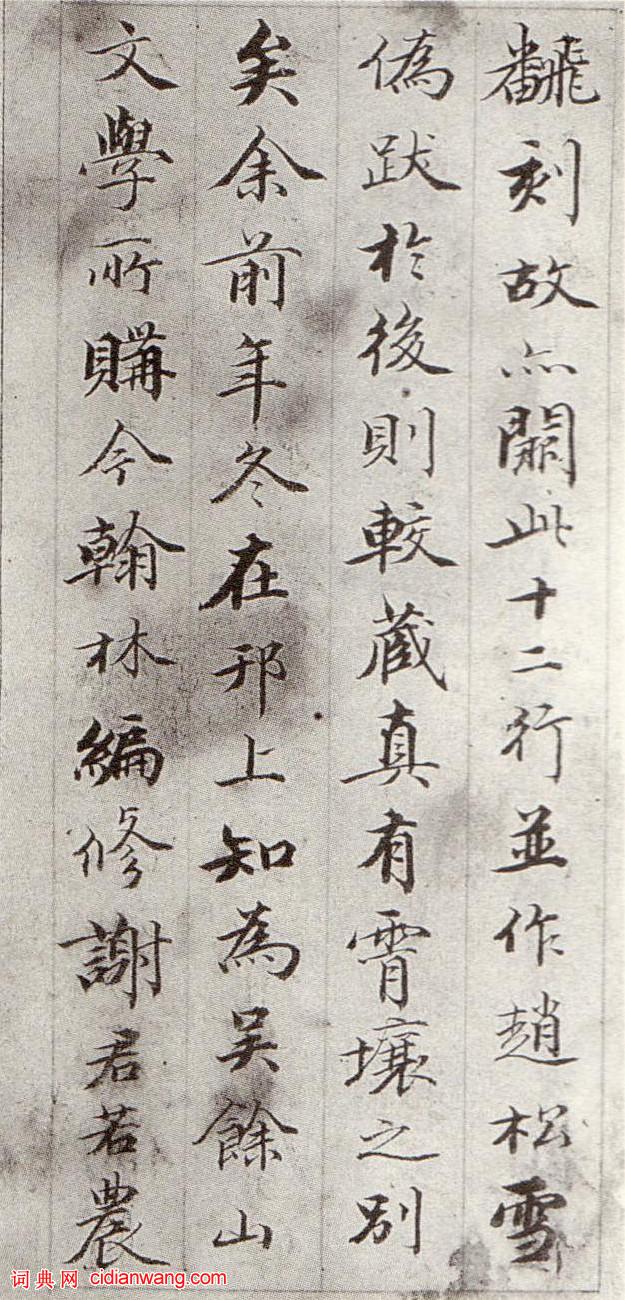 飜刻故亦闕此十二行並作趙松雪
偽跋於後則較蔵真有霄壤之別
矣余前年冬在邗上知為吴餘山
文學所購今翰林編修謝君若農
词典网 cidianwang.com